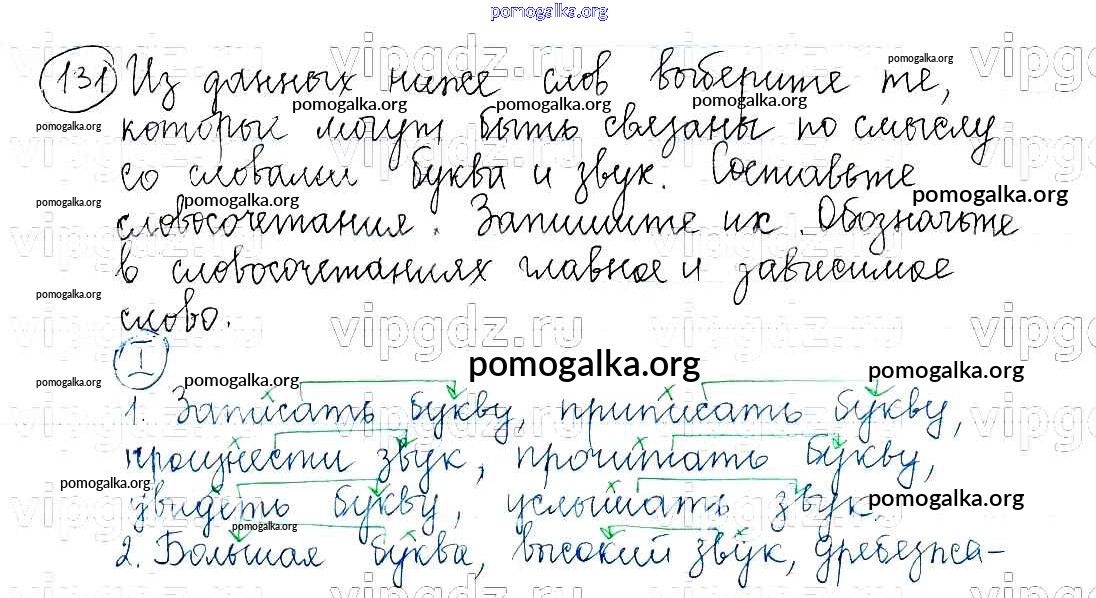 pomogalka.org
131 Из данных ниже слов выберите те,
которые могут быть связаны по смыслу
со словами буква и звук. Составьте
словосочетания. Запишите их. Обозначьте
в словосочетаниях главное и зависимое
слово.
I
1. Записать букву, приписать букву,
произнести звук, прочитать букву,
увидеть букву, услышать звук.
2. Большая буква, высокий звук, дребезжа-